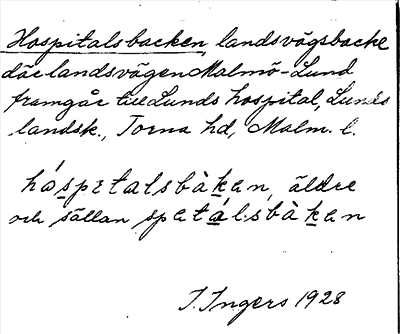 Hospitalsbacken, landsvägsbacke
där landsvägen Malmö-Lund
framgår till Lunds hospital, Lunds
landsk., Torna hd, Malm. l.
hóspɪtalsbàkan, äldre
och sällan spatálsbàkan
I. Ingers 1928